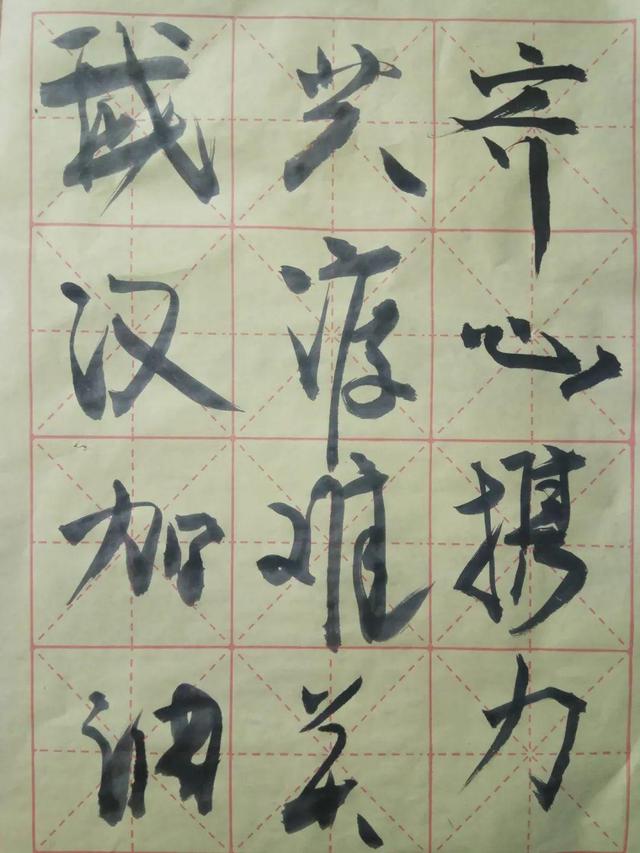 齐心携力
共渡难关
武汉加油